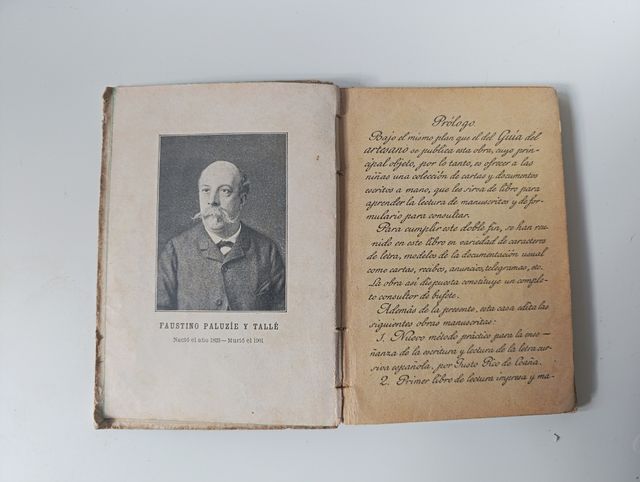 FAUSTINO PALUZÍE Y TALLÉ
Nació el año 1833 — Murió el 1901
Prólogo
Bajo el mismo plan que el del Guía del
artesano se publica esta obra, cuyo prin-
cipal objeto, por lo tanto, es ofrecer a las
niñas una colección de cartas y documentos
escritos a mano, que les sirva de libro para
aprender la lectura de manuscritos y de for-
mulario para consultar.
Para cumplir este doble fin, se han reu-
nido en este libro en variedad de caracteres
de letra, modelos de la documentación usual
como cartas, recibos, anuncios, telegramas, etc.
La obra así dispuesta constituye un comple-
to consultor de bufete.
Además de la presente, esta casa edita las
siguientes obras manuscritas:
1. Nuevo método práctico para la ense-
ñanza de la escritura y lectura de la letra cur-
siva española, por Gusto Rico de Coaña.
2. Primer libro de lectura impresa y ma-